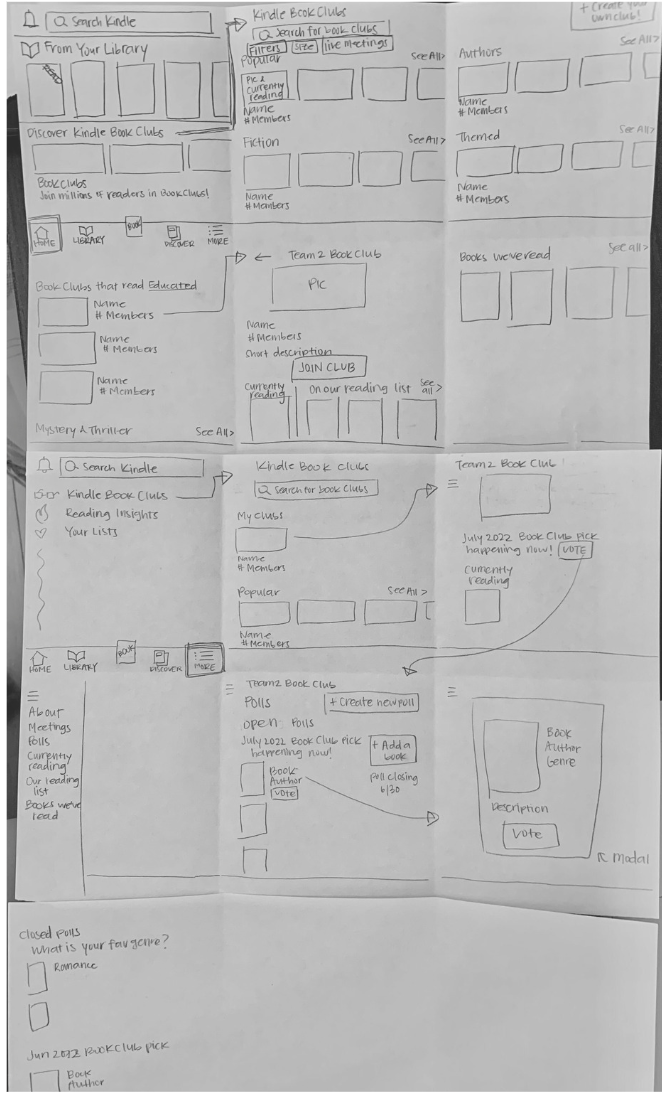 Search Kindle
From Your Library
Discover Kindle Book Clubs
Book Clubs
Join millions of readers in Book Clubs!
HOME
LIBRARY
BOOK
DISCOVER
MORE
Kindle Book Clubs
Search for book clubs
Filters
Size
live meetings
Popular
See All>
Pic 2
currently
reading
Name
# Members
Fiction
See All>
Name
# Members
+ Create
own club!
Authors
See All>
Name
# Members
Themed
See All>
Name
# Members
Book Clubs that read Educated
Name
# Members
Name
# Members
Name
# Members
Mystery & Thriller
See All>
← Team 2 Book Club
Pic
Name
# Members
Short description
JOIN CLUB
Currently
reading
On our reading list
See
all>
Books we've read
See all>
Search Kindle
Kindle Book Clubs
Reading Insights
Your Lists
HOME
LIBRARY
BOOK
DISCOVER
MORE
Kindle Book Clubs
Search for book clubs
My clubs
Name
# Members
Popular
See All>
Name
# Members
Team 2 Book Club
July 2022 Book Club pick
happening now! VOTE
Currently
reading
About
Meetings
Polls
Currently
reading
Our reading
list
Books we've
read
Team 2 Book Club
Polls
+ Create new poll
Open Polls
July 2022 Book Club pick
happening now!
+ Add a
book
Book
Author
Vote
poll closing
6/30
Book
Author
Genre
Description
Vote
Modal
Closed polls
What is your fav genre?
Romance
Jun 2022 Book Club pick
Book
Author